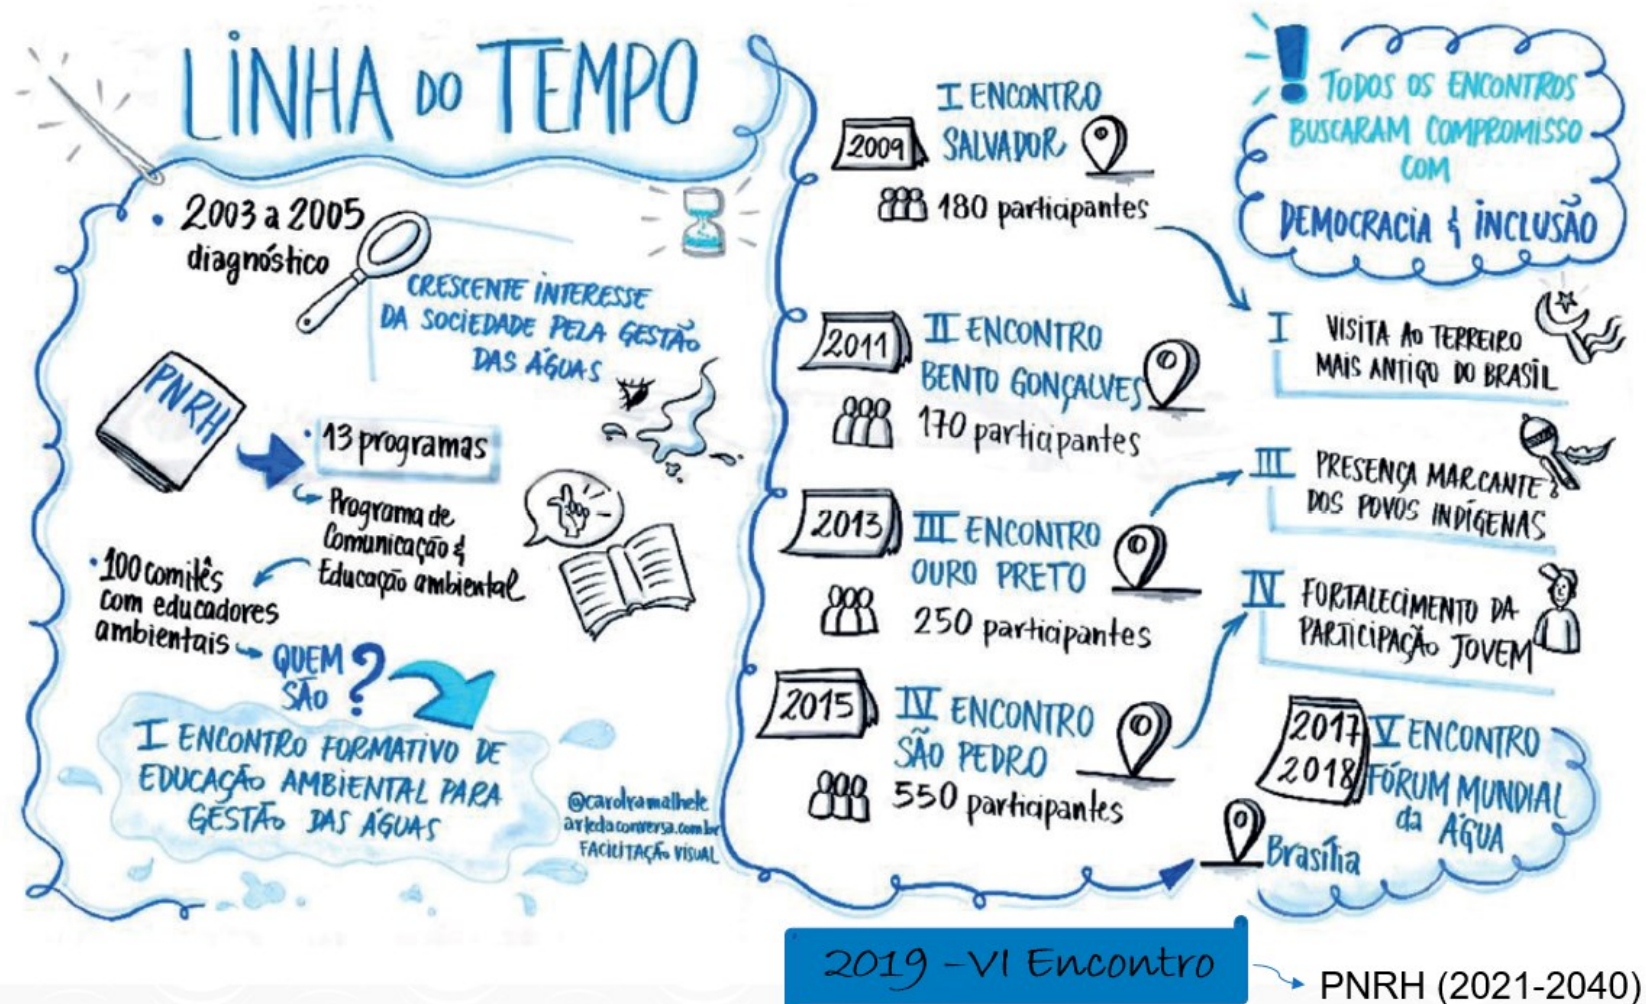 LINHA DO TEMPO
• 2003 a 2005
diagnóstico
CRESCENTE INTERESSE
DA SOCIEDADE PELA GESTÃO
DAS ÁGUAS
PNRH
• 13 programas
Programa de
Comunicação &
Educação ambiental
• 100 comitês
com educadores
ambientais
QUEM
SÃO ?
I ENCONTRO FORMATIVO DE
EDUCAÇÃO AMBIENTAL PARA
GESTÃO DAS ÁGUAS
@carolramalhete
artedaconversa.combr
FACILITAÇÃO VISUAL
I ENCONTRO
SALVADOR
2009
180 participantes
II ENCONTRO
BENTO GONÇALVES
2011
170 participantes
III ENCONTRO
OURO PRETO
2013
250 participantes
IV ENCONTRO
SÃO PEDRO
2015
550 participantes
! TODOS OS ENCONTROS
BUSCARAM COMPROMISSO
COM
DEMOCRACIA & INCLUSÃO
I VISITA AO TERREIRO
MAIS ANTIGO DO BRASIL
III PRESENÇA MARCANTE
DOS POVOS INDÍGENAS
IV FORTALECIMENTO DA
PARTICIPAÇÃO JOVEM
2017
2018
V ENCONTRO
FÓRUM MUNDIAL
da ÁGUA
Brasília
2019 -VI Encontro
PNRH (2021-2040)